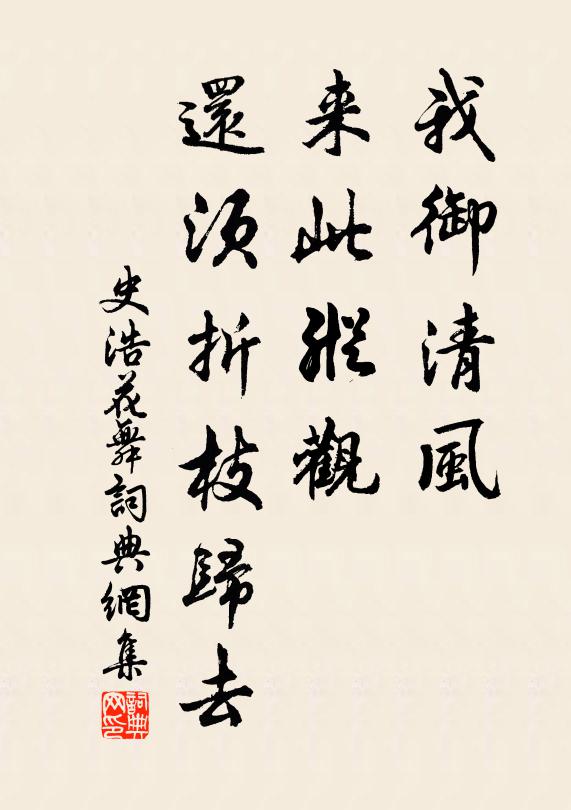 我御清風
来此縱觀
還須折枝歸去
史浩花舞詞典網集
詞典網印